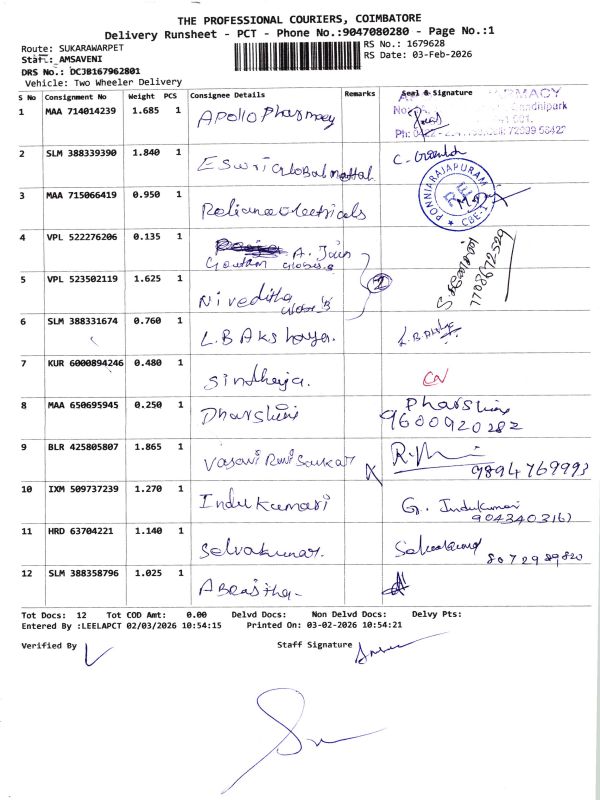 THE PROFESSIONAL COURIERS, COIMBATORE
Delivery Runsheet - PCT - Phone No.:9047080280 - Page No.:1
Route: SUKARAWARPET
Staff: AMSAVENI
DRS No.: DCJB167962801
Vehicle: Two Wheeler Delivery
RS No.: 1679628
RS Date: 03-Feb-2026
S No Consignment No Weight PCS Consignee Details Remarks Seal & Signature
1 MAA 714014239 1.685 1 Apollo Pharmacy
2 SLM 388339390 1.840 1 Eswri Global Mattal
PONNIARAJAPURAM
CBE-1
3 MAA 715066419 0.950 1 Reliance Electricals
4 VPL 522276206 0.135 1 A. Jain
Gowtam
5 VPL 523502119 1.625 1 Niveditha 2
7708672529
6 SLM 388331674 0.760 1 L.B Akshaya.
7 KUR 6000894246 0.480 1 Sindhuja. CN
8 MAA 650695945 0.250 1 Dharshini Dharshini
9600920282
9 BLR 425805807 1.865 1 Vasavi Ravi Sankar
9894769993
10 IXM 509737239 1.270 1 Indu Kumari G. Indukumari
9043403161
11 HRD 63704221 1.140 1 Selvakumar. Selvakumar
8072989820
12 SLM 388358796 1.025 1
Tot Docs: 12 Tot COD Amt: 0.00 Delvd Docs: Non Delvd Docs: Delvy Pts:
Entered By :LEELAPCT 02/03/2026 10:54:15 Printed On: 03-02-2026 10:54:21
Verified By Staff Signature